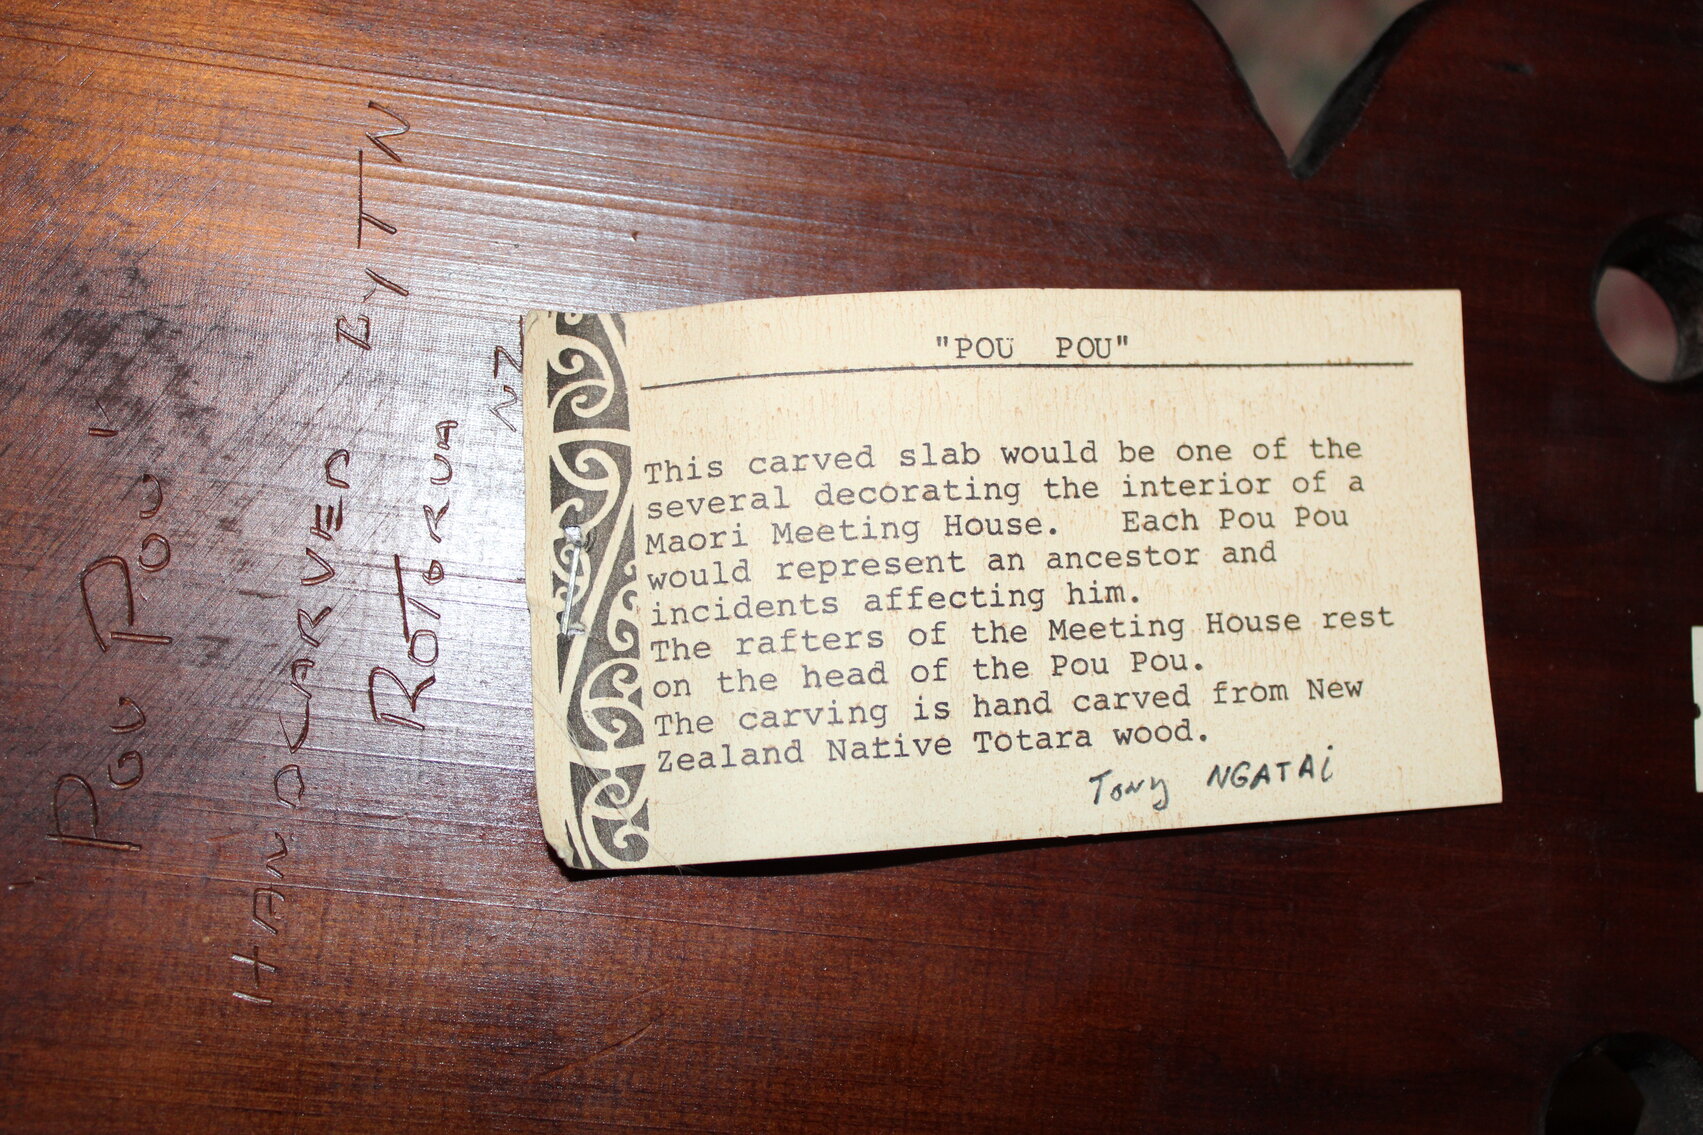 "POU POU"
This carved slab would be one of the
several decorating the interior of a
Maori Meeting House. Each Pou Pou
would represent an ancestor and
incidents affecting him.
The rafters of the Meeting House rest
on the head of the Pou Pou.
The carving is hand carved from New
Zealand Native Totara wood.
Tony NGATAi
POU POU"
HAND CARVED BY TN
ROTORUA NZ